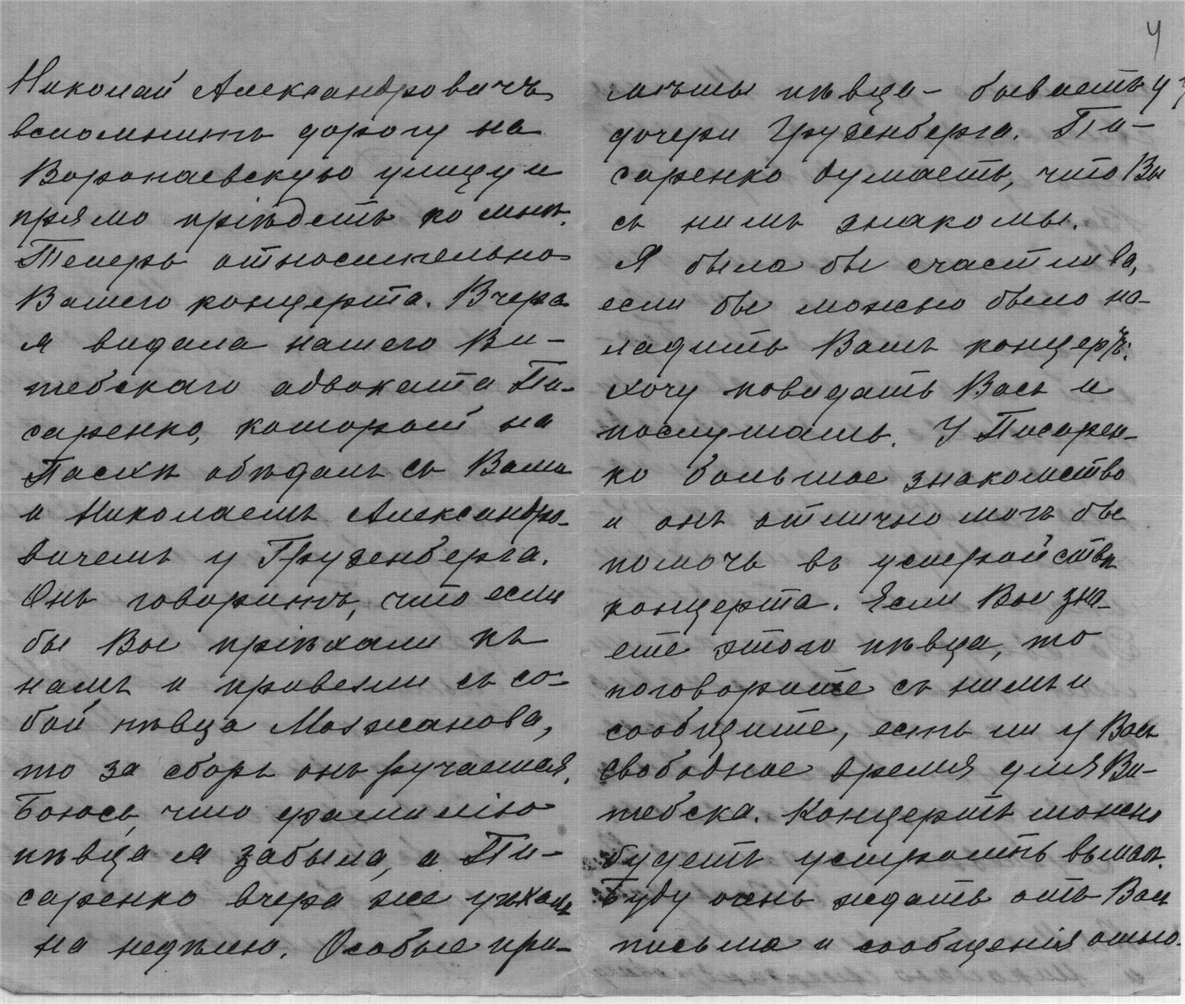 4
Николай Александровичъ
вспомнитъ дорогу на
Воропаевскую улицу и
прямо пріѣдетъ ко мнѣ.
Теперь относительно
Вашего концерта. Вчера
я видала нашего Ви-
тебскаго адвоката Пи-
саренко, который на
Пасхѣ обѣдалъ съ Вами
и Николаемъ Александро-
вичемъ у Грузенберга.
Онъ говоритъ, что если
бы Вы пріѣхали къ
намъ и привезли съ со-
бой пѣвца Мозжанова,
то за сборъ онъ ручается.
Боюсь, что фамилію
пѣвца я забыла, а Пи-
саренко вчера же уѣхалъ
на недѣлю. Особыя при-
мѣты пѣвца – бываетъ у
дочери Грузенберга. Пи-
саренко думаетъ, что Вы
съ нимъ знакомы.
Я была бы счастлива,
если бы можно было на-
ладить Вашъ концертъ.
Хочу повидать Васъ и
послушать. У Писарен-
ко большое знакомство
и онъ отлично могъ бы
помочь въ устройствѣ
концерта. Если Вы зна-
ете этого пѣвца, то
поговорите съ нимъ и
сообщите, есть ли у Васъ
свободное время для Ви-
тебска. Концертъ можно
будетъ устроить
Буду очень ждать отъ Васъ
письма и сообщенія относ-